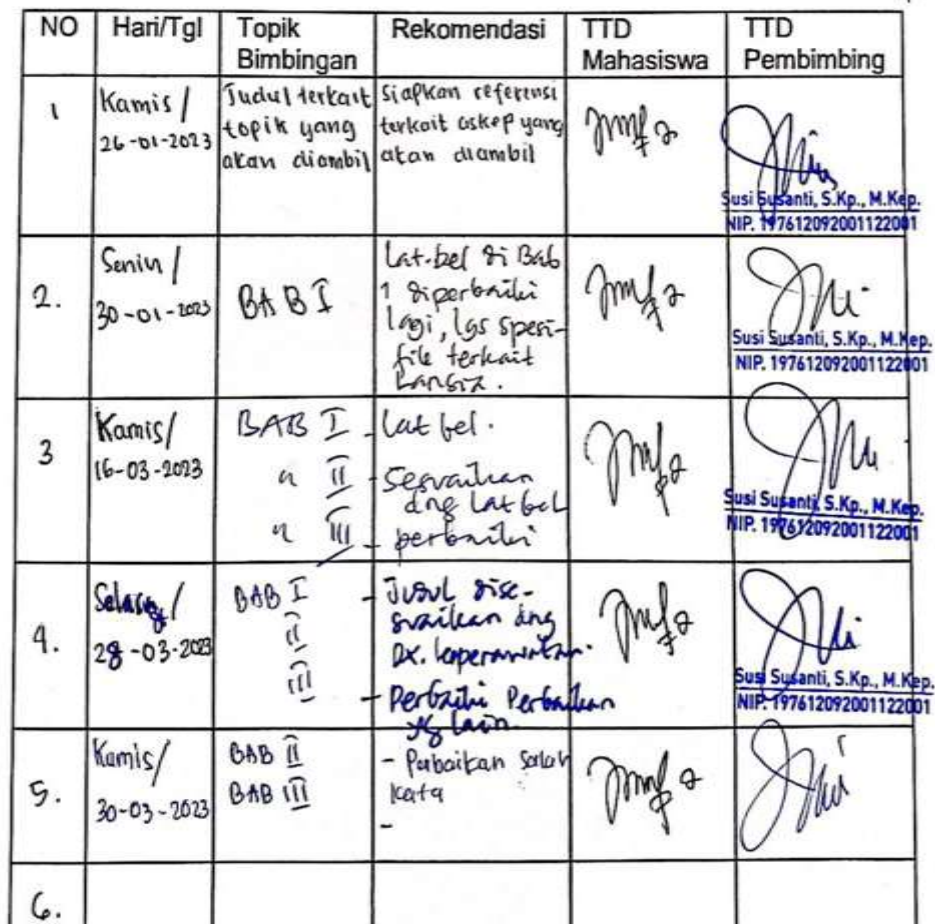 NO Hari/Tgl Topik Bimbingan Rekomendasi TTD Mahasiswa TTD Pembimbing
1
Kamis /
26-01-2023
Judul terkait
topik yang
akan diambil
Siapkan referensi
terkait askep yang
akan diambil
Susi Susanti, S.Kp., M.Kep.
NIP. 197612092001122001
2.
Senin /
30-01-2023
BAB I
Lat.bel di Bab
1 diperbaiki
lagi, lgs spesi-
fik terkait
Lansia.
Susi Susanti, S.Kp., M.Kep.
NIP. 197612092001122001
3
Kamis/
16-03-2023
BAB I
" II
" III
- Lat bel.
- Sesuaikan
dng Lat bel
- perbaiki
Susi Susanti, S.Kp., M.Kep.
NIP. 197612092001122001
4.
Selasa /
28-03-2023
BAB I
II
III
- Judul dise-
suaikan dng
Dx. keperawatan.
- Perbaiki Perbaikan
yg lain.
Susi Susanti, S.Kp., M.Kep.
NIP. 197612092001122001
5.
Kamis/
30-03-2023
BAB II
BAB III
- Perbaikan Salah
kata
-
6.